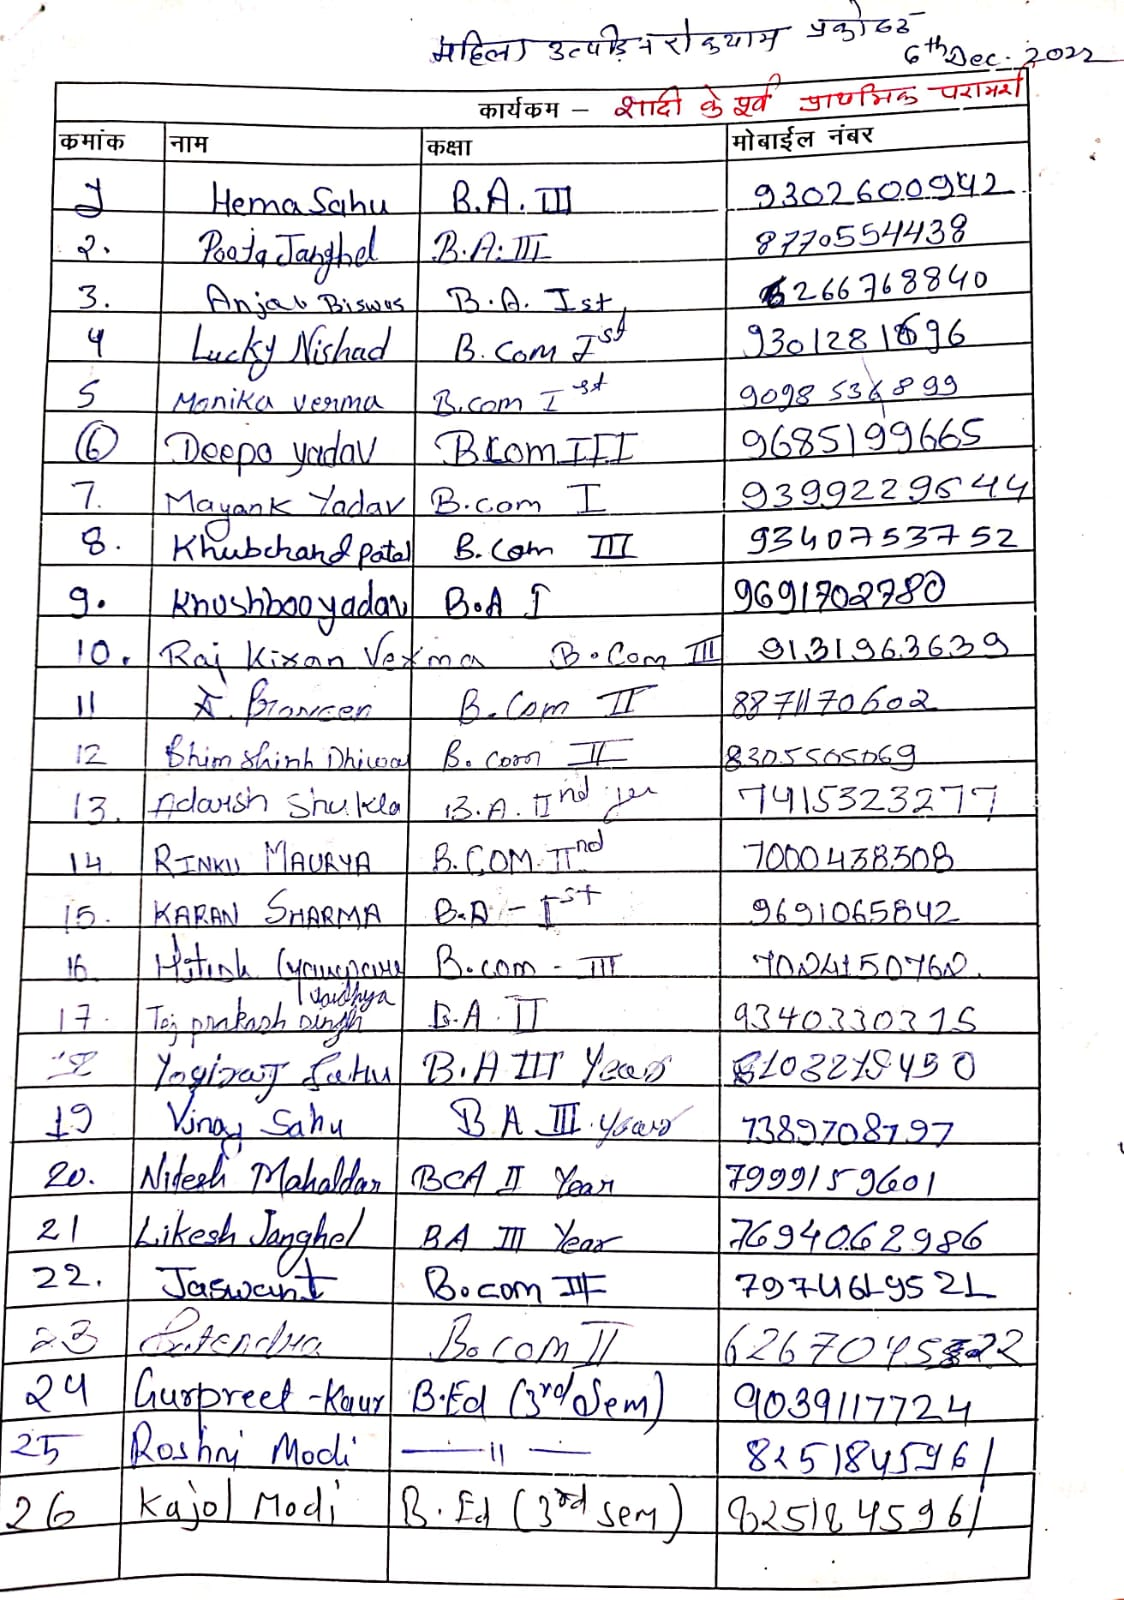 महिला उत्पीड़न रोकथाम प्रकोष्ठ
6th Dec. 2022
कार्यकम – शादी के पूर्व प्राथमिक परामर्श
कमांक नाम कक्षा मोबाईल नंबर
1 Hema Sahu B.A. III 9302600942
2. Pooja Janghel B.A. III 8770554438
3. Anjali Biswas B.A. Ist 6266768840
4 Lucky Nishad B.Com Ist 9301281696
5 Monika verma B.com Ist 9098536899
6 Deepa yadav B.Com III 9685199665
7. Mayank Yadav B.com I 9399229544
8. Khubchand patel B.Com III 9340753752
9. Khushboo yadav B.A I 9691702780
10. Raj Kiran Verma B.Com III 9131963639
11 B.Com II 8871170602
12 Bhim Shinh B.com II 8305505069
13. Adarsh Shukla B.A. IInd year 7415323277
14 RINKU MAURYA B.COM. IInd 7000438308
15. KARAN SHARMA B.A - Ist 9691065842
16. Hitesh B.com - III 7024150762
vaidhya
17. Tej prakash singh B.A. II 9340330315
18 Yogiraj Sahu B.A III Years 6103219450
19 Vinay Sahu B A III. years 7389708797
20. Nitesh Mahaldar BCA II Year 7999159601
21 Likesh Janghel BA III Year 7694062986
22. Jaswant B.com II 7974619521
23 B.com II
24 Gurpreet -Kaur B.Ed (3rd Sem) 9039117724
25 Roshni Modi — 11 — 8251845961
26 Kajol Modi B.Ed (3rd sem) 8251845961